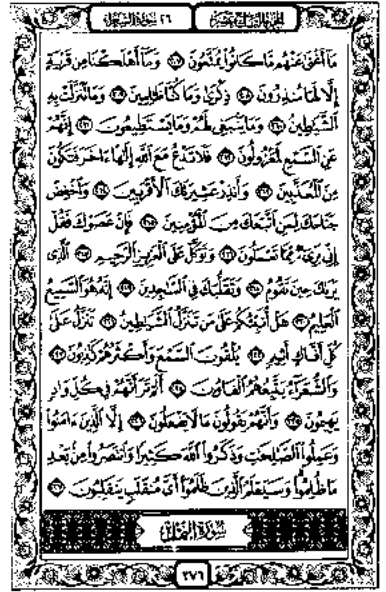 الجزء التاسع عشر ٢٦ سورة الشعراء
مَآ أَغْنَىٰ عَنْهُم مَّا كَانُوا۟ يُمَتَّعُونَ وَمَآ أَهْلَكْنَا مِن قَرْيَةٍ
إِلَّا لَهَا مُنذِرُونَ ذِكْرَىٰ وَمَا كُنَّا ظَٰلِمِينَ وَمَا تَنَزَّلَتْ بِهِ
ٱلشَّيَٰطِينُ وَمَا يَنۢبَغِى لَهُمْ وَمَا يَسْتَطِيعُونَ إِنَّهُمْ
عَنِ ٱلسَّمْعِ لَمَعْزُولُونَ فَلَا تَدْعُ مَعَ ٱللَّهِ إِلَٰهًا ءَاخَرَ فَتَكُونَ
مِنَ ٱلْمُعَذَّبِينَ وَأَنذِرْ عَشِيرَتَكَ ٱلْأَقْرَبِينَ وَٱخْفِضْ
جَنَاحَكَ لِمَنِ ٱتَّبَعَكَ مِنَ ٱلْمُؤْمِنِينَ فَإِنْ عَصَوْكَ فَقُلْ
إِنِّى بَرِىٓءٌ مِّمَّا تَعْمَلُونَ وَتَوَكَّلْ عَلَى ٱلْعَزِيزِ ٱلرَّحِيمِ ٱلَّذِى
يَرَىٰكَ حِينَ تَقُومُ وَتَقَلُّبَكَ فِى ٱلسَّٰجِدِينَ إِنَّهُۥ هُوَ ٱلسَّمِيعُ
ٱلْعَلِيمُ هَلْ أُنَبِّئُكُمْ عَلَىٰ مَن تَنَزَّلُ ٱلشَّيَٰطِينُ تَنَزَّلُ عَلَىٰ
كُلِّ أَفَّاكٍ أَثِيمٍ يُلْقُونَ ٱلسَّمْعَ وَأَكْثَرُهُمْ كَٰذِبُونَ
وَٱلشُّعَرَآءُ يَتَّبِعُهُمُ ٱلْغَاوُۥنَ أَلَمْ تَرَ أَنَّهُمْ فِى كُلِّ وَادٍ
يَهِيمُونَ وَأَنَّهُمْ يَقُولُونَ مَا لَا يَفْعَلُونَ إِلَّا ٱلَّذِينَ ءَامَنُوا۟
وَعَمِلُوا۟ ٱلصَّٰلِحَٰتِ وَذَكَرُوا۟ ٱللَّهَ كَثِيرًا وَٱنتَصَرُوا۟ مِنۢ بَعْدِ
مَا ظُلِمُوا۟ وَسَيَعْلَمُ ٱلَّذِينَ ظَلَمُوٓا۟ أَىَّ مُنقَلَبٍ يَنقَلِبُونَ
سُورَةُ النَّمْلِ
٣٧٦